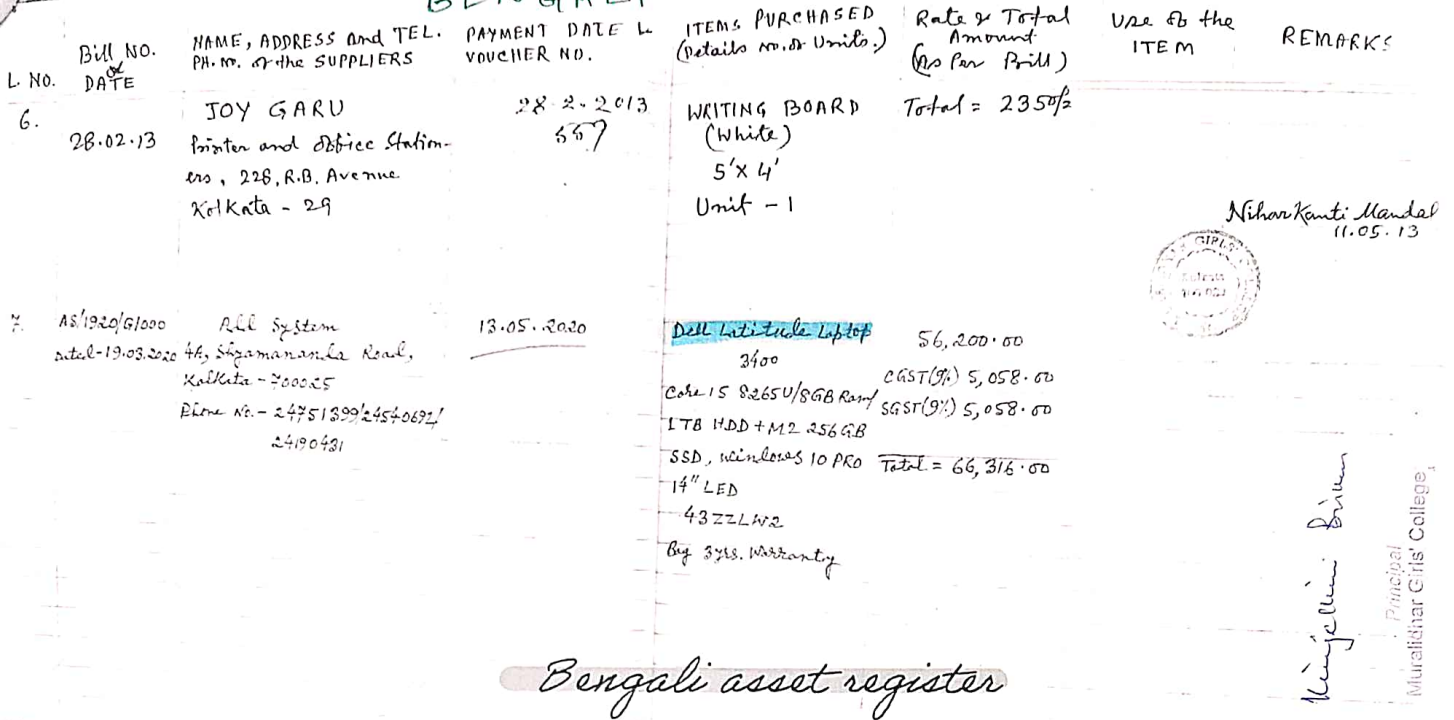 BENGALI
L. NO.
Bill NO. or DATE
NAME, ADDRESS and TEL.
PH. NO. of the SUPPLIERS
PAYMENT DATE &
VOUCHER NO.
ITEMS PURCHASED
(Details no. of Units.)
Rate & Total
Amount
(As Per Bill)
Use of the
ITEM
REMARKS
6.
28.02.13
JOY GARU
Printer and Office Station-
ers, 228, R.B. Avenue
Kolkata - 29
28.2.2013
557
WRITING BOARD
(White)
5'x 4'
Unit - 1
Total = 2350/-
Nihar Kanti Mandal
11.05.13
GIRLS'
7.
AS/1920/G/000
dated-19.03.2020
All System
4A, Shyamananda Road,
Kolkata - 700025
Phone No. - 24751399/24540692/
24190431
13.05.2020
Dell Latitude Laptop
3400
Core i5 8265U/8GB Ram/
1TB HDD + M2 256GB
SSD, Windows 10 PRO
14" LED
43ZZLW2
By 3yrs. Warranty
56,200.00
CGST(9%) 5,058.00
SGST(9%) 5,058.00
Total = 66,316.00
Principal
Muralidhar Girls' College
Bengali asset register